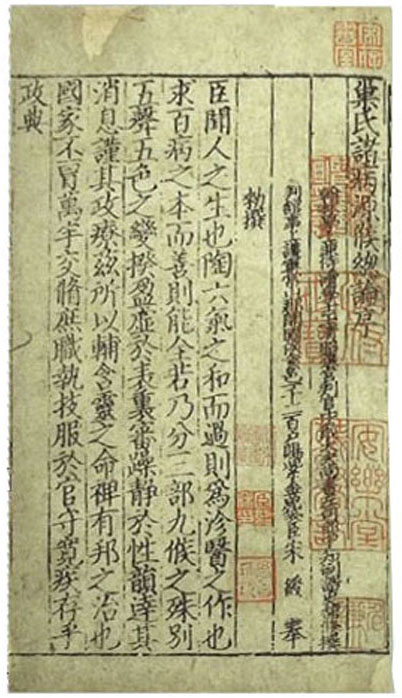 巢氏諸病源候緫論序
一千二百戶賜紫金魚袋臣宋綬奉
勑撰
臣聞人之生也陶六氣之和而過則爲沴醫之作也
求百病之本而善則能全若乃分三部九候之殊別
五聲五色之變揆盈虛於表裏審躁靜於性韻達其
消息謹其攻療茲所以輔含靈之命裨有邦之治也
國家丕冒萬宇交脩庶職執技服於官守寬疾存乎
政典